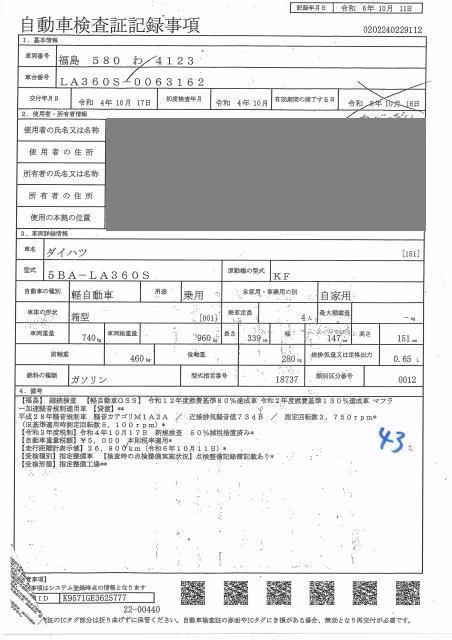 記録年月日 令和 6年 10月 11日
自動車検査証記録事項
0202240229112
1．基本情報
車両番号 福島 580 わ 4123
車台番号 LA360S-0063162
交付年月日 令和 4年 10月 17日 初度検査年月 令和 4年 10月 有効期間の満了する日 令和 8年 10月 16日
2．使用者・所有者情報
使用者の氏名又は名称
使用者の住所
所有者の氏名又は名称
所有者の住所
使用の本拠の位置
3．車両詳細情報
車名 ダイハツ [151]
型式 5BA-LA360S 原動機の型式 KF
自動車の種別 軽自動車 用途 乗用 自家用・事業用の別 自家用
車体の形状 箱型 [001] 乗車定員 4人 最大積載量 -kg
車両重量 740kg 車両総重量 960kg 長さ 339cm 幅 147cm 高さ 151cm
前軸重 460kg 後軸重 280kg 総排気量又は定格出力 0.65 L
燃料の種類 ガソリン 型式指定番号 18737 類別区分番号 0012
4．備考
【福島】 継続検査 【軽自動車OSS】 令和12年度燃費基準80％達成車 令和2年度燃費基準130％達成車 マフラ
ー加速騒音規制適用車 【貸渡】**
平成28年騒音規制車 騒音カテゴリM1A2A ／ 近接排気騒音値73dB ／ 測定回転数3，750rpm*
(旧基準適用時測定回転数5，100rpm)*
【令和3年度税制】令和4年10月17日 新規検査 50％減税措置済み*
【自動車重量税額】¥5，000 本則税率適用*
【走行距離計表示値】36，900km（令和6年10月11日）*
【受検種別】指定整備車 【検査時の点検整備実施状況】点検整備記録簿記載あり*
【受検形態】指定整備工場**
43
事項】
事項はシステム登録時点の情報となります
ID K9571GE3625777
22-00440
証のICタグ部分は折り曲げずに保管ください。自動車検査証の券面やICタグにき損がある場合、無効となり再交付が必要です。